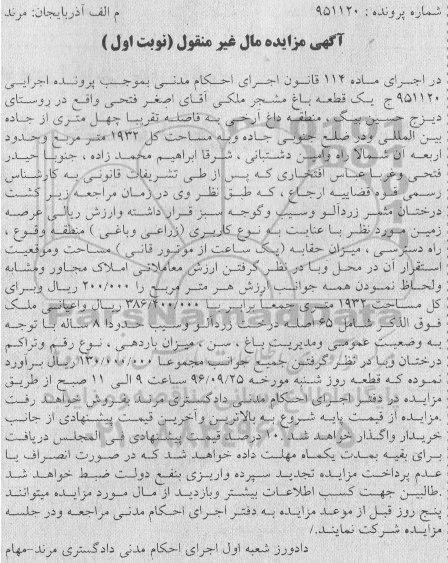 شماره پرونده : ۹۵۱۱۲۰ م الف آذربایجان: مرند
آگهی مزایده مال غیر منقول (نوبت اول )
در اجرای ماده ۱۱۴ قانون اجرای احکام مدنی بموجب پرونده اجرایی
۹۵۱۱۲۰ ج یک قطعه باغ مشجر ملکی آقای اصغر فتحی واقع در روستای
دیزج حسین بیگ، منطقه داغ ارجی به فاصله تقریبا چهل متری از جاده
بین المللی و در ضلع جنوبی جاده وبه مساحت کل ۱۹۳۲ متر مربع وحدود
اربعه آن شمالا راه وامین دشتبانی ، شرقا ابراهیم محمد زاده ، جنوبا حیدر
فتحی وغربا عباس افتخاری که پس از طی تشریفات قانونی به کارشناس
رسمی قوه قضاییه ارجاع، که طبق نظر وی در زمان مراجعه زیر کشت
درختان مثمر زردآلو وسیب وگوجه سبز قرار داشته وارزش ریالی عرصه
زمین مورد نظر با عنایت به نوع کاربری (زراعی وباغی ) منطقه وقوع ،
دسترسی ، میزان حقابه (یک ساعت از موتور قانی ) مساحت وموقعیت
استقرار آن در محل وبا در نظر گرفتن ارزش معاملاتی املاک مجاور ومشابه
ولحاظ نمودن همه جوانب ارزش هر متر مربع را ۲۰۰/۰۰۰ ریال وبرای
کل مساحت ۱۹۳۲ متری جمعا برابر با ۳۸۶/۴۰۰/۰۰۰ ریال واعیانی ملک
فوق الذکر شامل ۶۵ اصله درخت زردآلو وسیب حدودا ۸ ساله با توجه
به وضعیت عمومی ومدیریت باغ ، سن ، میزان باردهی ، نوع رقم وتراکم
درختان وبا در نظر گرفتن جمیع جوانب مجموعا ۱۳۰/۰۰۰/۰۰۰ ریال برآورد
نموده که قطعه روز شنبه مورخه ۹۶/۰۹/۲۵ ساعت ۹ الی ۱۱ صبح از طریق
مزایده در دفتر اجرای احکام مدنی دادگستری مرند به فروش خواهد رفت
مزایده از قیمت پایه شروع به بالاترین وآخرین قیمت پیشنهادی از جانب
خریدار واگذار خواهد شد ۱۰ درصد قیمت پیشنهادی فی المجلس دریافت
برای بقیه بمدت یکماه مهلت داده خواهد شد که در صورت انصراف یا
عدم پرداخت مزایده تجدید سپرده واریزی بنفع دولت ضبط خواهد شد
.طالبین جهت کسب اطلاعات بیشتر وبازدید از مال مورد مزایده میتوانند
پنج روز قبل از موعد مزایده به دفتر اجرای احکام مدنی مراجعه ودر جلسه
مزایده شرکت نمایند./
دادورز شعبه اول اجرای احکام مدنی دادگستری مرند-مهام